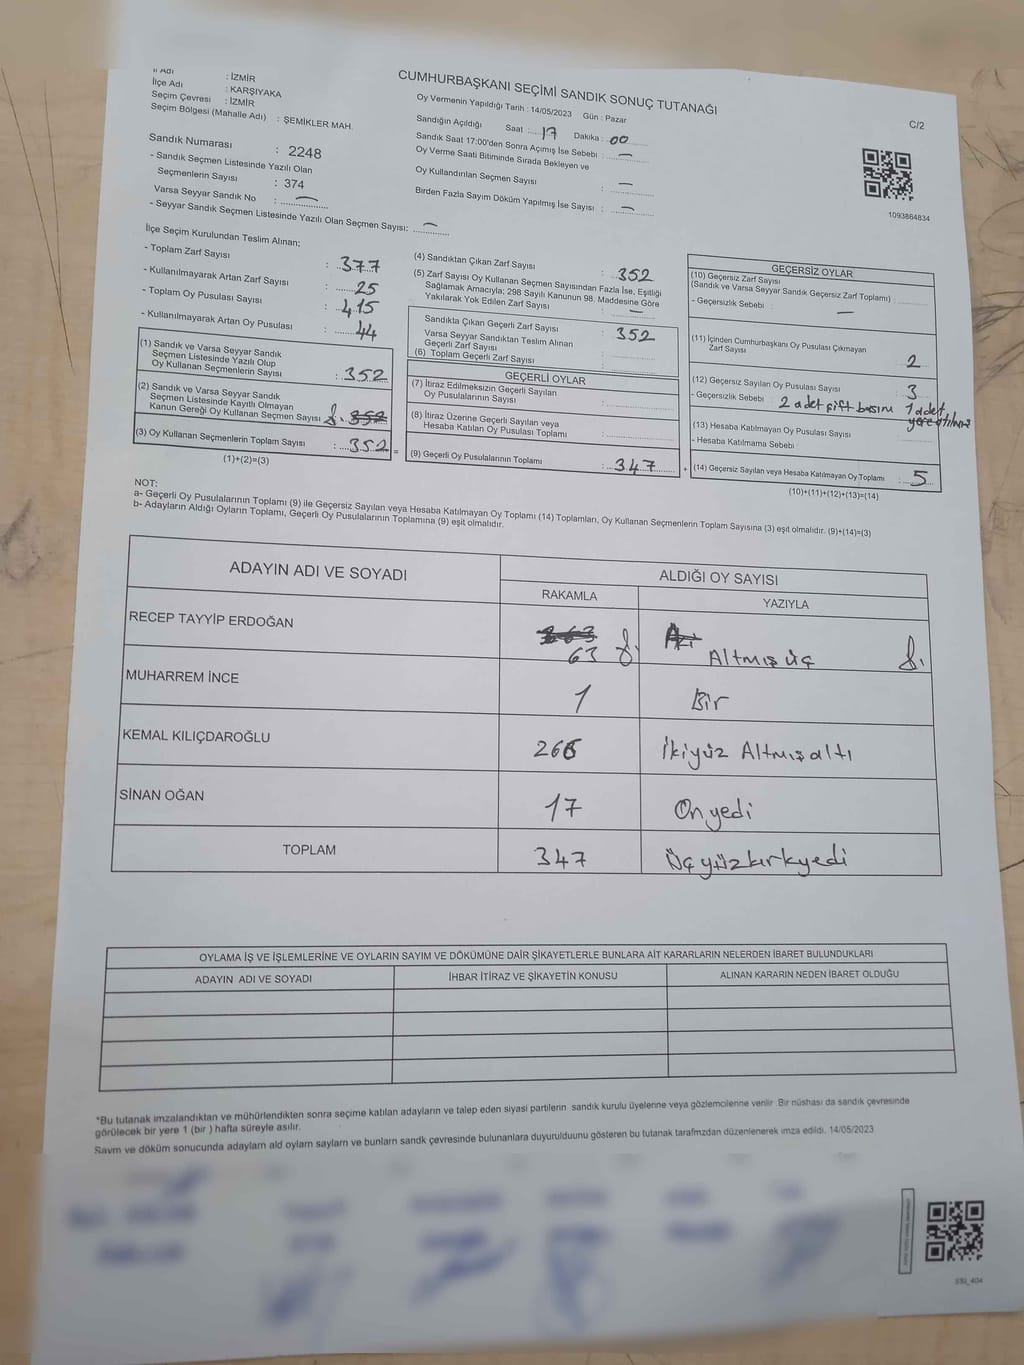 İl Adı : İZMİR
İlçe Adı : KARŞIYAKA
Seçim Çevresi : İZMİR
Seçim Bölgesi (Mahalle Adı) : ŞEMİKLER MAH.
Sandık Numarası : 2248
- Sandık Seçmen Listesinde Yazılı Olan
Seçmenlerin Sayısı : 374
Varsa Seyyar Sandık No : —
- Seyyar Sandık Seçmen Listesinde Yazılı Olan Seçmen Sayısı: —
CUMHURBAŞKANI SEÇİMİ SANDIK SONUÇ TUTANAĞI
Oy Vermenin Yapıldığı Tarih : 14/05/2023 Gün : Pazar
Sandığın Açıldığı Saat : 17 Dakika : 00
Sandık Saat 17:00'den Sonra Açımış İse Sebebi : —
Oy Verme Saati Bitiminde Sırada Bekleyen ve
Oy Kullandırılan Seçmen Sayısı : —
Birden Fazla Sayım Döküm Yapılmış İse Sayısı : —
C/2
1093864834
İlçe Seçim Kurulundan Teslim Alınan;
- Toplam Zarf Sayısı : 377
- Kullanılmayarak Artan Zarf Sayısı : 25
- Toplam Oy Pusulası Sayısı : 415
- Kullanılmayarak Artan Oy Pusulası : 44
(1) Sandık ve Varsa Seyyar Sandık
Seçmen Listesinde Yazılı Olup
Oy Kullanan Seçmenlerin Sayısı : 352
(2) Sandık ve Varsa Seyyar Sandık
Seçmen Listesinde Kayıtlı Olmayan
Kanun Gereği Oy Kullanan Seçmen Sayısı 352
(3) Oy Kullanan Seçmenlerin Toplam Sayısı : 352 =
(1)+(2)=(3)
(4) Sandıktan Çıkan Zarf Sayısı : 352
(5) Zarf Sayısı Oy Kullanan Seçmen Sayısından Fazla İse, Eşitliği
Sağlamak Amacıyla; 298 Sayılı Kanunun 98. Maddesine Göre
Yakılarak Yok Edilen Zarf Sayısı : —
Sandıkta Çıkan Geçerli Zarf Sayısı : 352
Varsa Seyyar Sandıktan Teslim Alınan
Geçerli Zarf Sayısı :
(6) Toplam Geçerli Zarf Sayısı :
GEÇERLİ OYLAR
(7) İtiraz Edilmeksizin Geçerli Sayılan
Oy Pusulalarının Sayısı :
(8) İtiraz Üzerine Geçerli Sayılan veya
Hesaba Katılan Oy Pusulası Toplamı :
(9) Geçerli Oy Pusulalarının Toplamı : 347 +
GEÇERSİZ OYLAR
(10) Geçersiz Zarf Sayısı
(Sandık ve Varsa Seyyar Sandık Geçersiz Zarf Toplamı) :
- Geçersizlik Sebebi : —
(11) İçinden Cumhurbaşkanı Oy Pusulası Çıkmayan
Zarf Sayısı : 2
(12) Geçersiz Sayılan Oy Pusulası Sayısı : 3
- Geçersizlik Sebebi : 2 adet çift basım 1 adet
(13) Hesaba Katılmayan Oy Pusulası Sayısı :
- Hesaba Katılmama Sebebi :
(14) Geçersiz Sayılan veya Hesaba Katılmayan Oy Toplamı : 5
(10)+(11)+(12)+(13)=(14)
NOT:
a- Geçerli Oy Pusulalarının Toplamı (9) ile Geçersiz Sayılan veya Hesaba Katılmayan Oy Toplamı (14) Toplamları, Oy Kullanan Seçmenlerin Toplam Sayısına (3) eşit olmalıdır. (9)+(14)=(3)
b- Adayların Aldığı Oyların Toplamı, Geçerli Oy Pusulalarının Toplamına (9) eşit olmalıdır.
ADAYIN ADI VE SOYADI
ALDIĞI OY SAYISI
RAKAMLA YAZIYLA
RECEP TAYYİP ERDOĞAN 63 Altmış üç
MUHARREM İNCE 1 Bir
KEMAL KILIÇDAROĞLU 266 İkiyüz Altmışaltı
SİNAN OĞAN 17 Onyedi
TOPLAM 347 Üçyüzkırkyedi
OYLAMA İŞ VE İŞLEMLERİNE VE OYLARIN SAYIM VE DÖKÜMÜNE DAİR ŞİKAYETLERLE BUNLARA AİT KARARLARIN NELERDEN İBARET BULUNDUKLARI
ADAYIN ADI VE SOYADI İHBAR İTİRAZ VE ŞİKAYETİN KONUSU ALINAN KARARIN NEDEN İBARET OLDUĞU
*Bu tutanak imzalandıktan ve mühürlendikten sonra seçime katılan adayların ve talep eden siyasi partilerin sandık kurulu üyelerine veya gözlemcilerine verilir. Bir nüshası da sandık çevresinde
görülecek bir yere 1 (bir ) hafta süreyle asılır.
Sayım ve döküm sonucunda adayların ald oyların sayların ve bunların sandk çevresinde bulunanlara duyurulduunu gösteren bu tutanak tarafmzdan düzenlenerek imza edildi. 14/05/2023